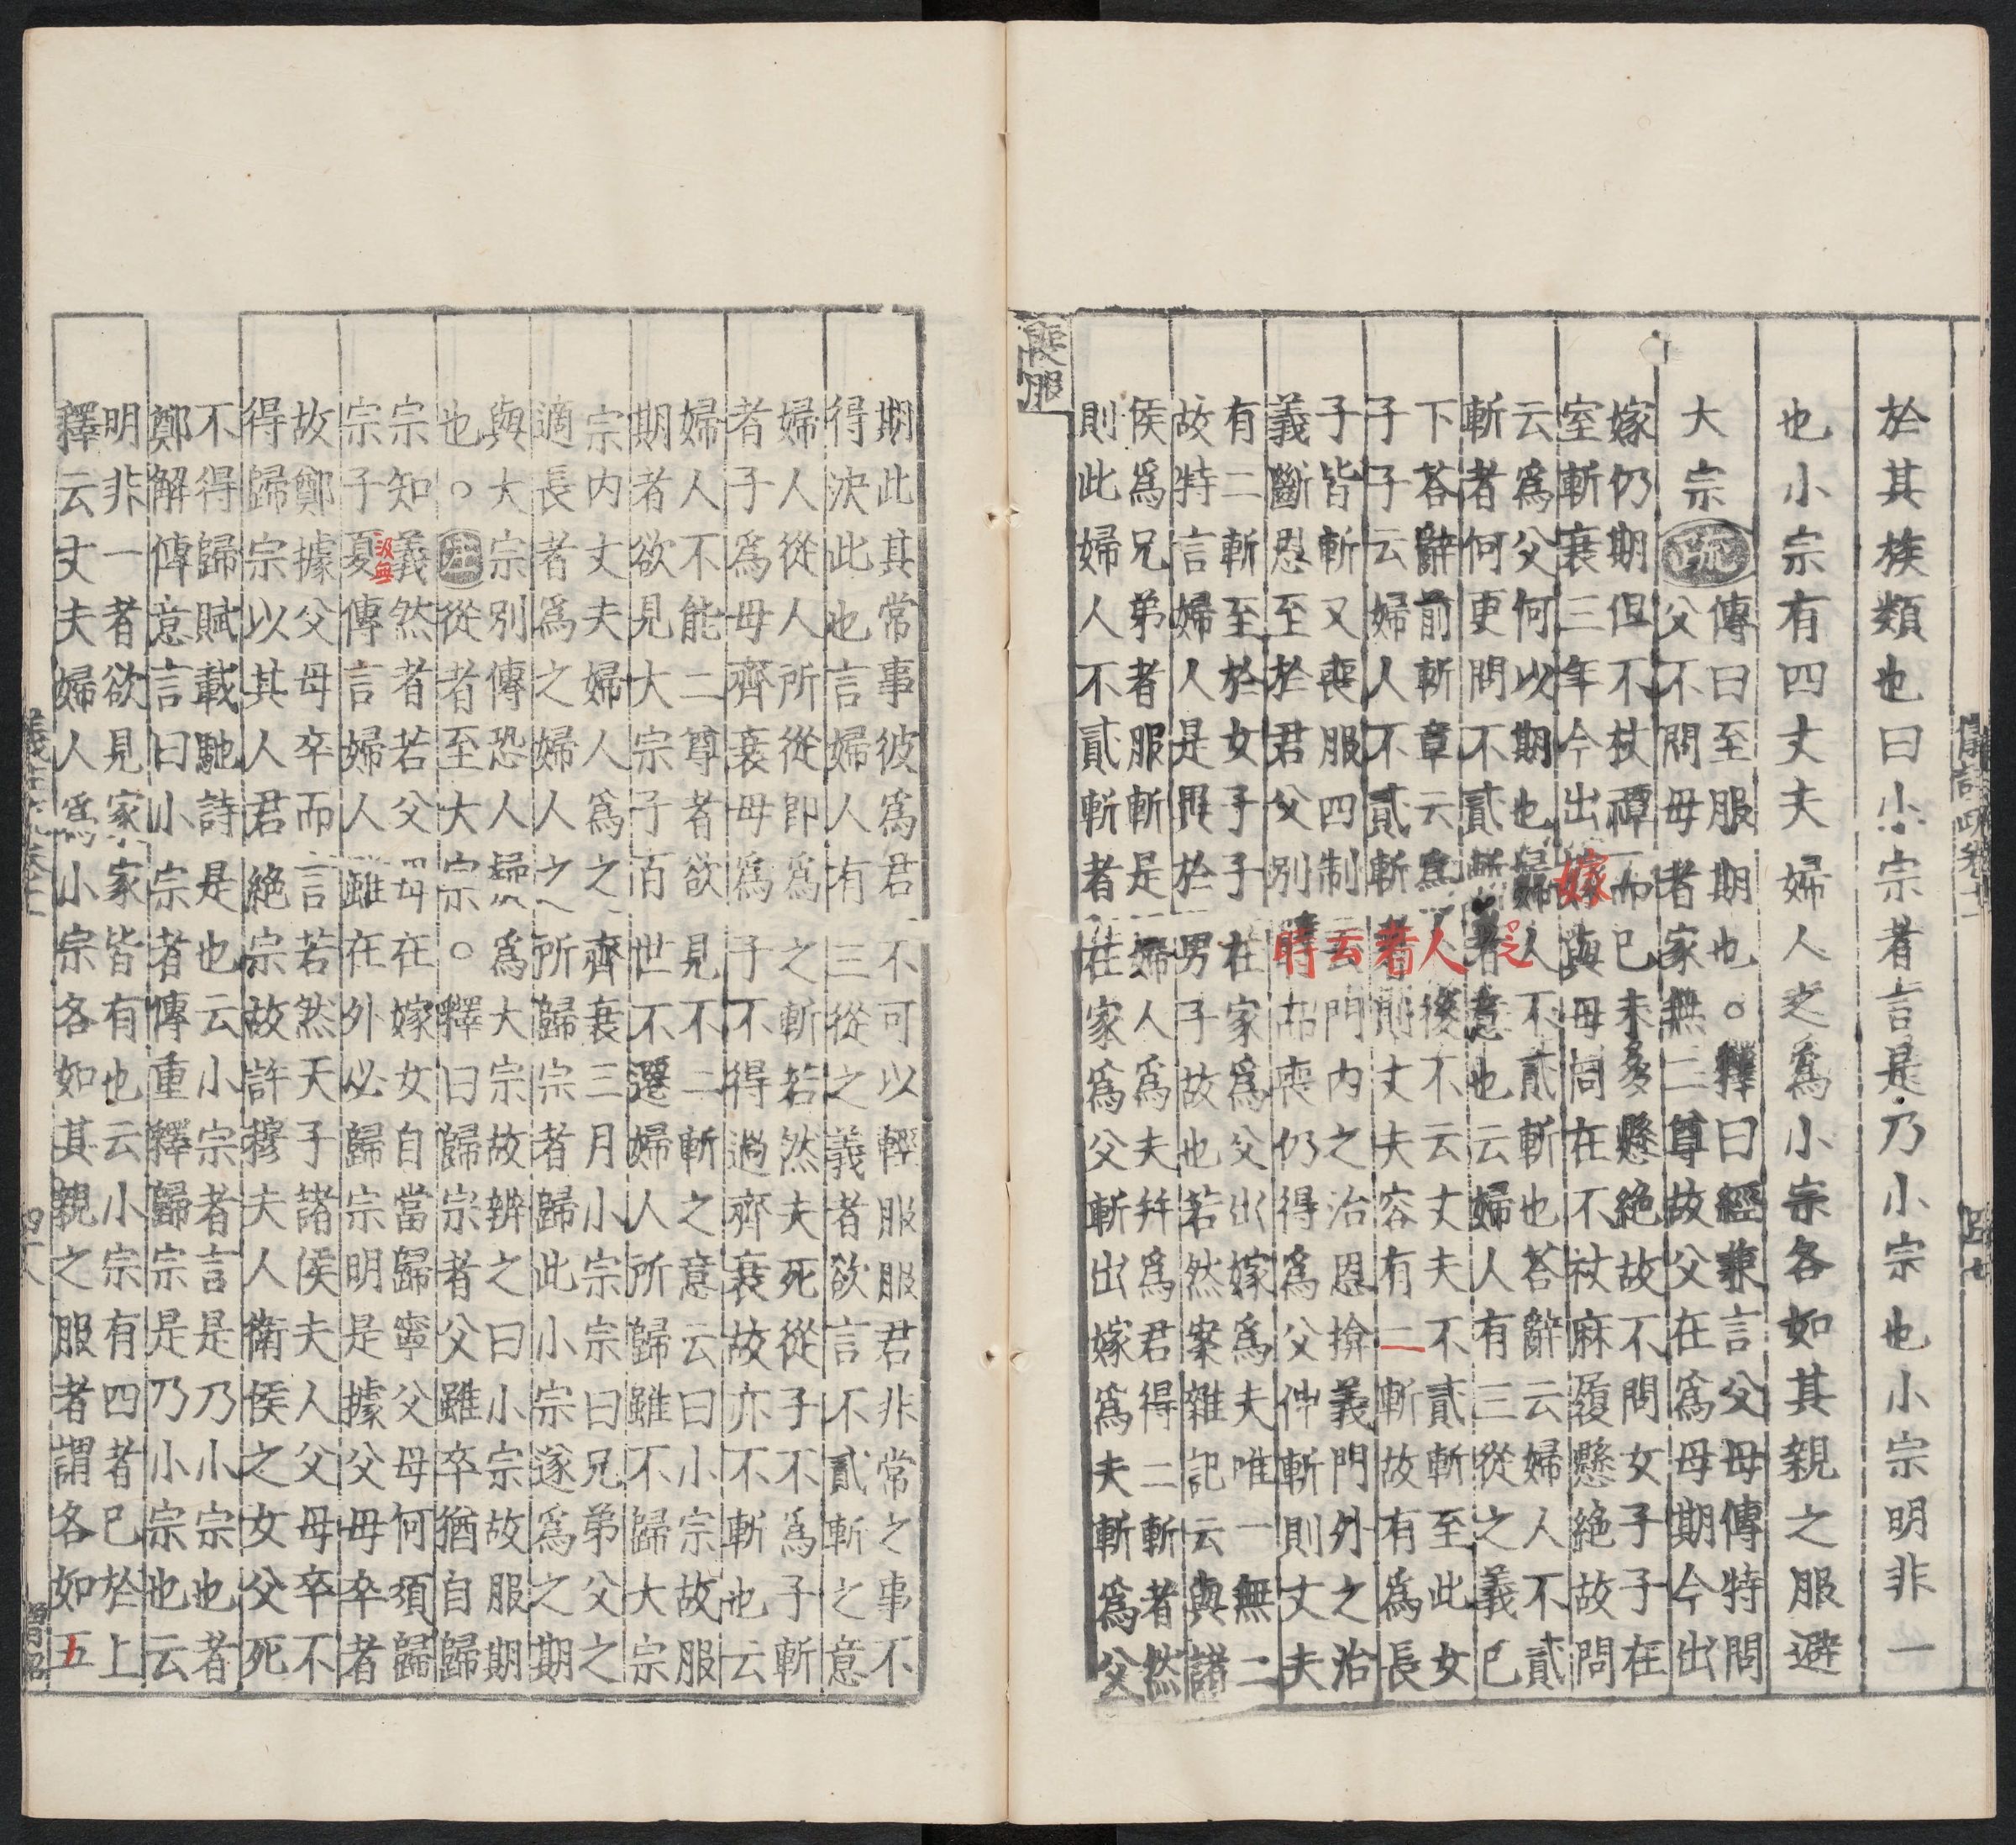 於其族類也曰小宗者言是乃小宗也小宗明非一
也小宗有四丈夫婦人之爲小宗各如其親之服避
大宗
疏
傳曰至服期也○釋曰經兼言父母傳特問
父不問母者家無二尊故父在爲母期今出
嫁仍期但不杖禫而已未多懸絶故不問女子子在
室斬衰三年今出嫁與母同在不杖麻屨懸絶故問
云爲父何以期也婦人不貳斬也荅辭云婦人不貳
斬者何更問不貳斬之意也云婦人有三從之義已
下荅辭前斬章云爲人後不云丈夫不貳斬至此女
子子云婦人不貳斬者則丈夫容有二斬故有爲長
子皆斬又喪服四制云門內之治恩揜義門外之治
義斷恩至於君父別時而喪仍得爲父伸斬則丈夫
有二斬至於女子子在家爲父出嫁爲夫唯一無二
故特言婦人是異於男子故也若然案雜記云與諸
侯爲兄弟者服斬是婦人爲夫并爲君得二斬者然
則此婦人不貳斬者在家爲父斬出嫁爲夫斬爲父
喪服
嫁
之
人
者
云
時
期此其常事彼爲君不可以輕服服君非常之事不
得決此也言婦人有三從之義者欲言不貳斬之意
婦人從人所從即爲之斬若然夫死從子不爲子斬
者子爲母齊衰母爲子不得過齊衰故亦不斬也云
婦人不能二尊者欲見不二斬之意云曰小宗故服
期者欲見大宗子百世不遷婦人所歸雖不歸大宗
宗內丈夫婦人爲之齊衰三月小宗曰兄弟父之
適長者爲之婦人之所歸宗者歸此小宗遂爲之期
與大宗別傳恐人歸爲大宗故辨之曰小宗故服期
也○
注
從者至大宗○釋曰歸宗者父雖卒猶自歸
宗知義然者若父母在嫁女自當歸寧父母何須歸
宗子夏傳言婦人雖在外必歸宗明是據父母卒者
汲無
故鄭據父母卒而言若然天子諸侯夫人父母卒不
得歸宗以其人君絶宗故許穆夫人衛侯之女父死
不得歸賦載馳詩是也云小宗者言是乃小宗也者
鄭解傳意言曰小宗者傳重釋歸宗是乃小宗也云
明非一者欲見家家皆有也云小宗有四者已於上
釋云丈夫婦人爲小宗各如其親之服者謂各如五